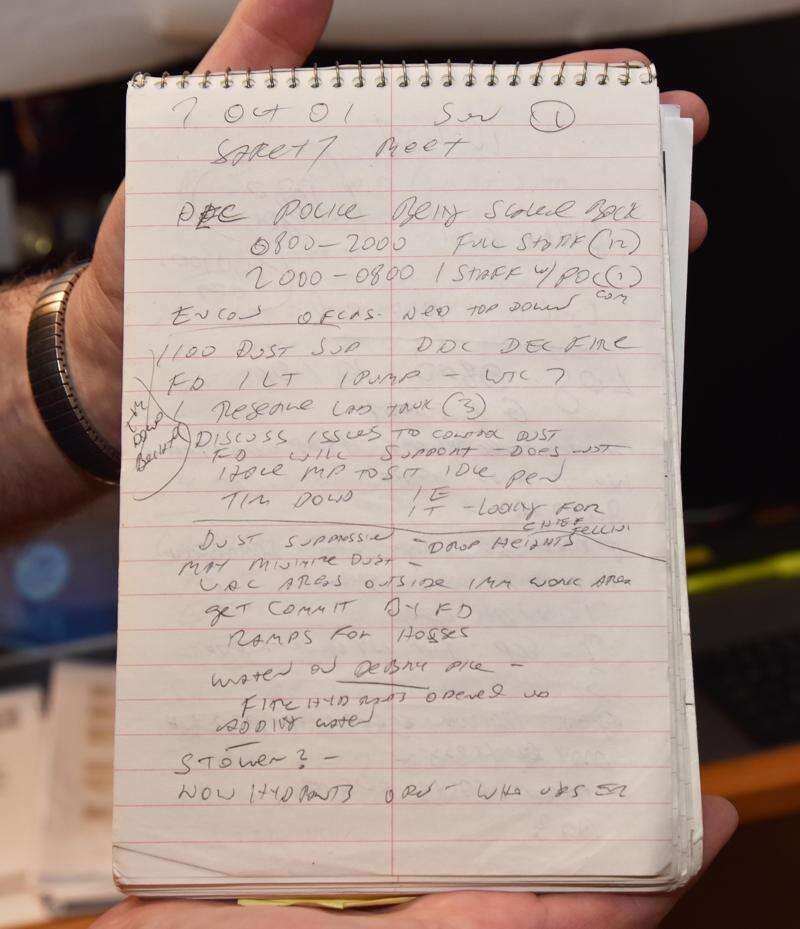 7 Oct 01 Sun 1
SAFETY MEET
DEC POLICE Being Scaled Back
0800-2000 FULL STAFF (12)
2000-0800 1 STAFF w/ POC (1)
ENCON OFCRS. NEED TOP DOWN COM
1100 DUST SUP DDC DEC FIRE
FD 1 LT 1 PUMP - WTC 7
1 Reserve LAD TRUK (3)
DISCUSS ISSUES TO CONTROL DUST
FD WILL SUPPORT - DOES NOT
HAVE MP TO SIT IDLE
TIM DOWD - LOOKING FOR
CHIEF FELLINI
DOWD
DUST SUPPRESSION - DROP HEIGHTS
MAY MINIMIZE DUST -
VAC AREAS OUTSIDE IMM WORK AREA
GET COMMIT BY FD
RAMPS FOR HOSES
WATER ON DEBRIS PILE -
FIRE HYDRANTS OPENED UP
ADDING WATER
-
HYDRANTS - WHO